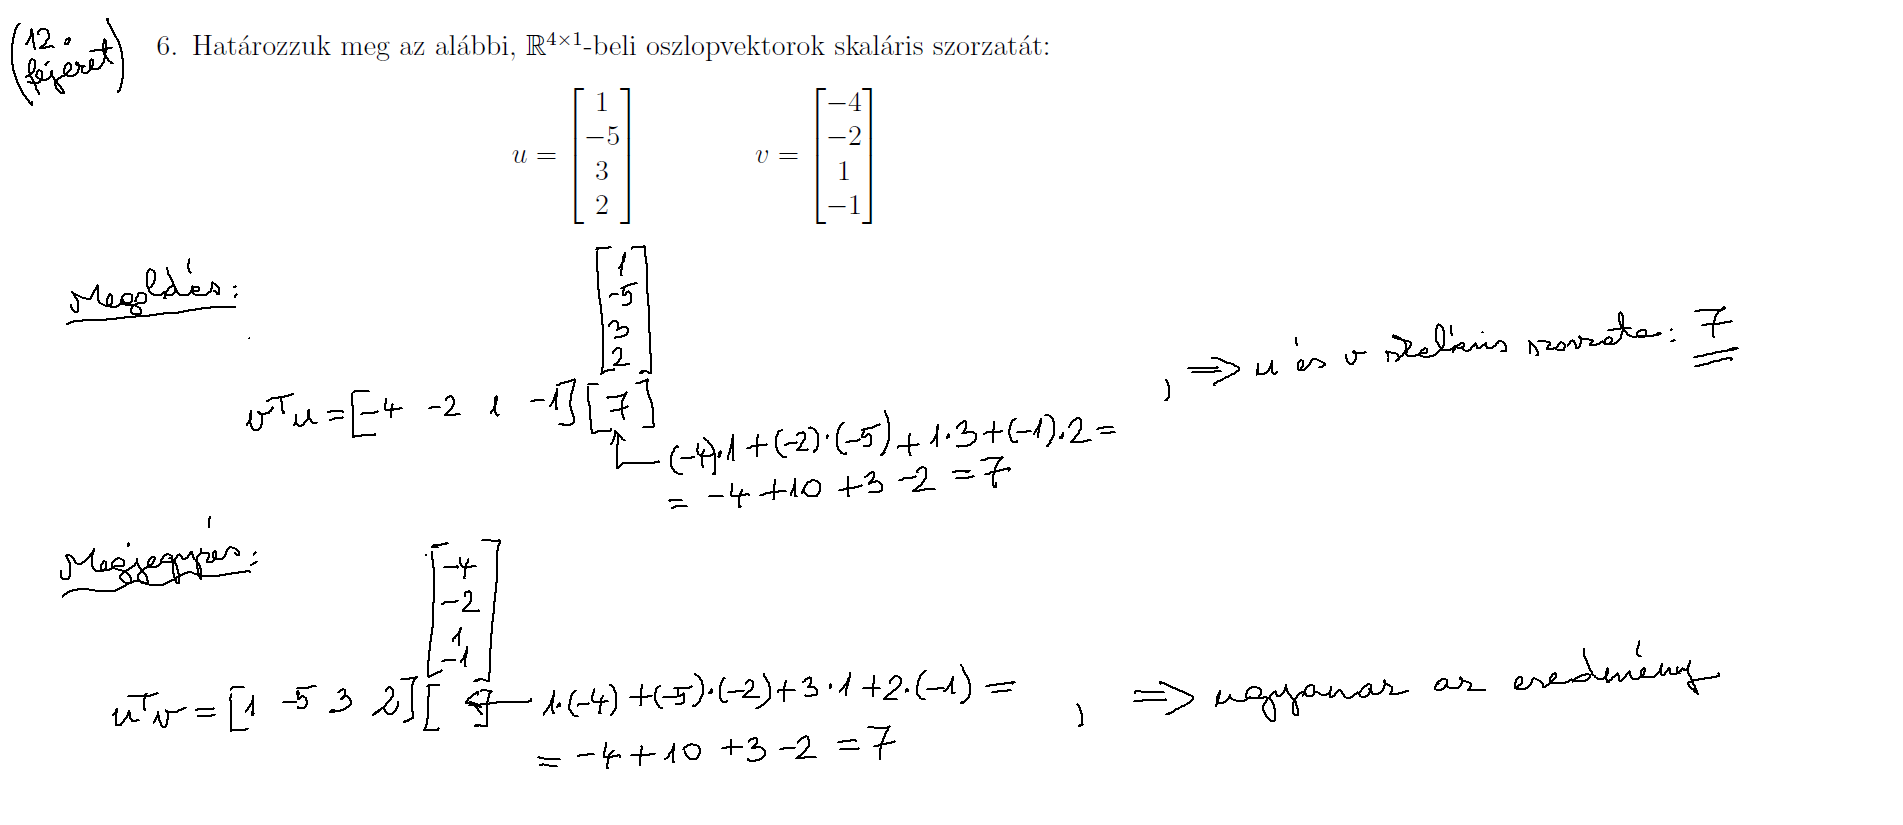 (12. fejezet)
6. Határozzuk meg az alábbi, ℝ⁴ˣ¹-beli oszlopvektorok skaláris szorzatát:
u = [1 −5 3 2] v = [−4 −2 1 −1]
Megoldás:
[1 -5 3 2]
vᵀu = [-4 -2 1 -1] [7]
(-4)·1+(-2)·(-5)+1·3+(-1)·2=
= -4+10+3-2=7
, ⇒ u és v skaláris szorzata: 7
Megjegyzés:
[-4 -2 1 -1]
uᵀv = [1 -5 3 2] [ ] ← 1·(-4)+(-5)·(-2)+3·1+2·(-1)=
= -4+10+3-2=7
, ⇒ ugyanaz az eredmény